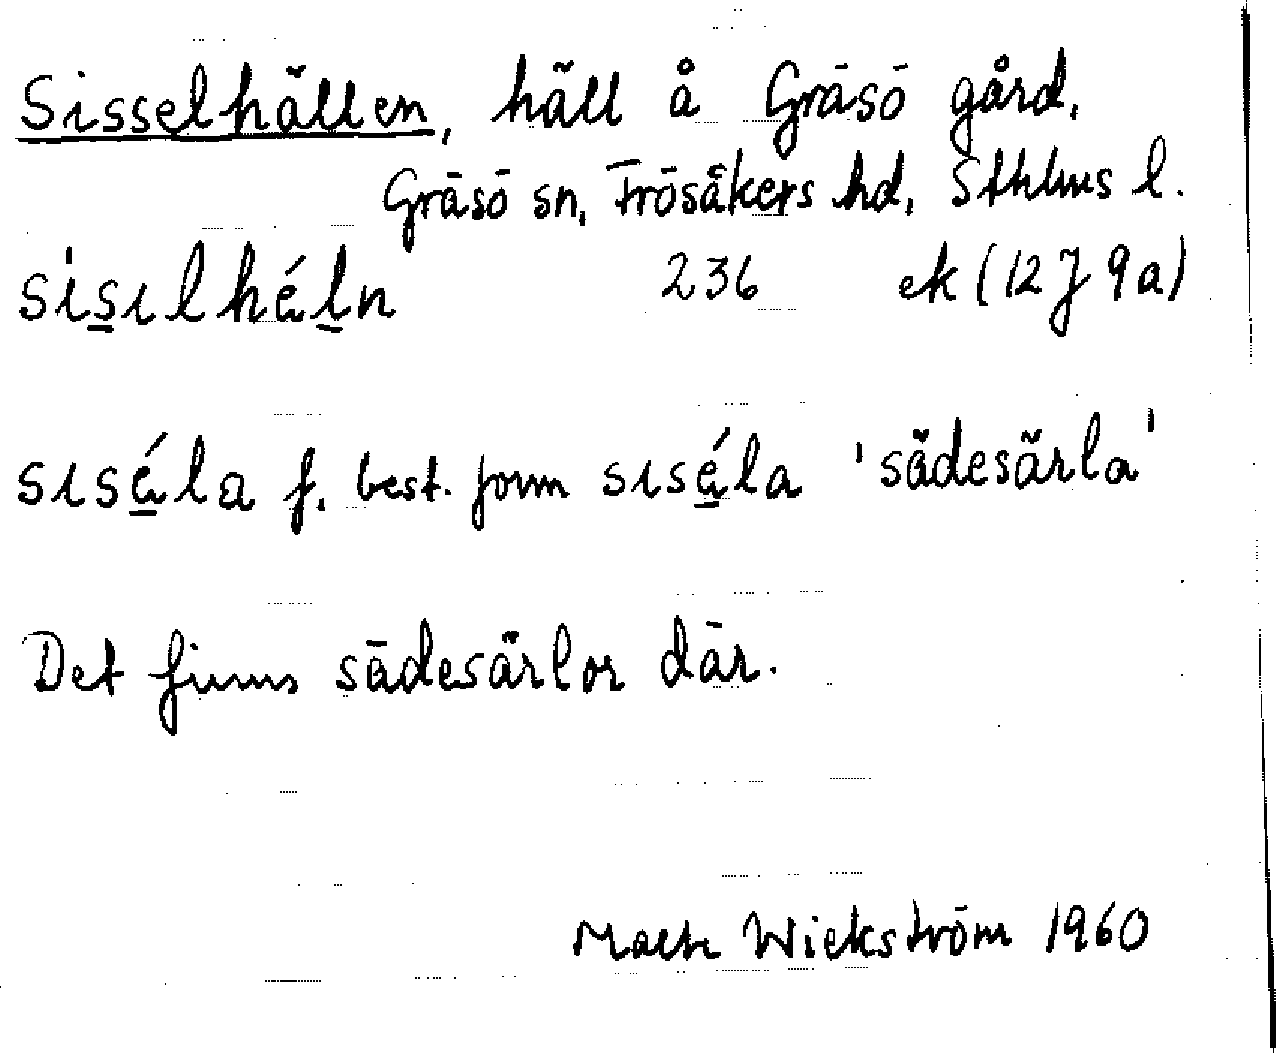 Sisselhällen, häll å Gräsö gård,
Gräsö sn, Frösåkers hd, Sthlms l.
sisilhéln 236 ek (12 J 9 a)
sısǽla f. best. form sısǽla 'sädesärla'
Det finns sädesärlor där.
Wickström 1960